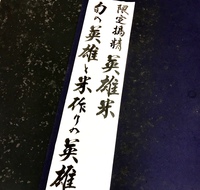 限定搗精
英雄米
力の英雄と米作りの英雄